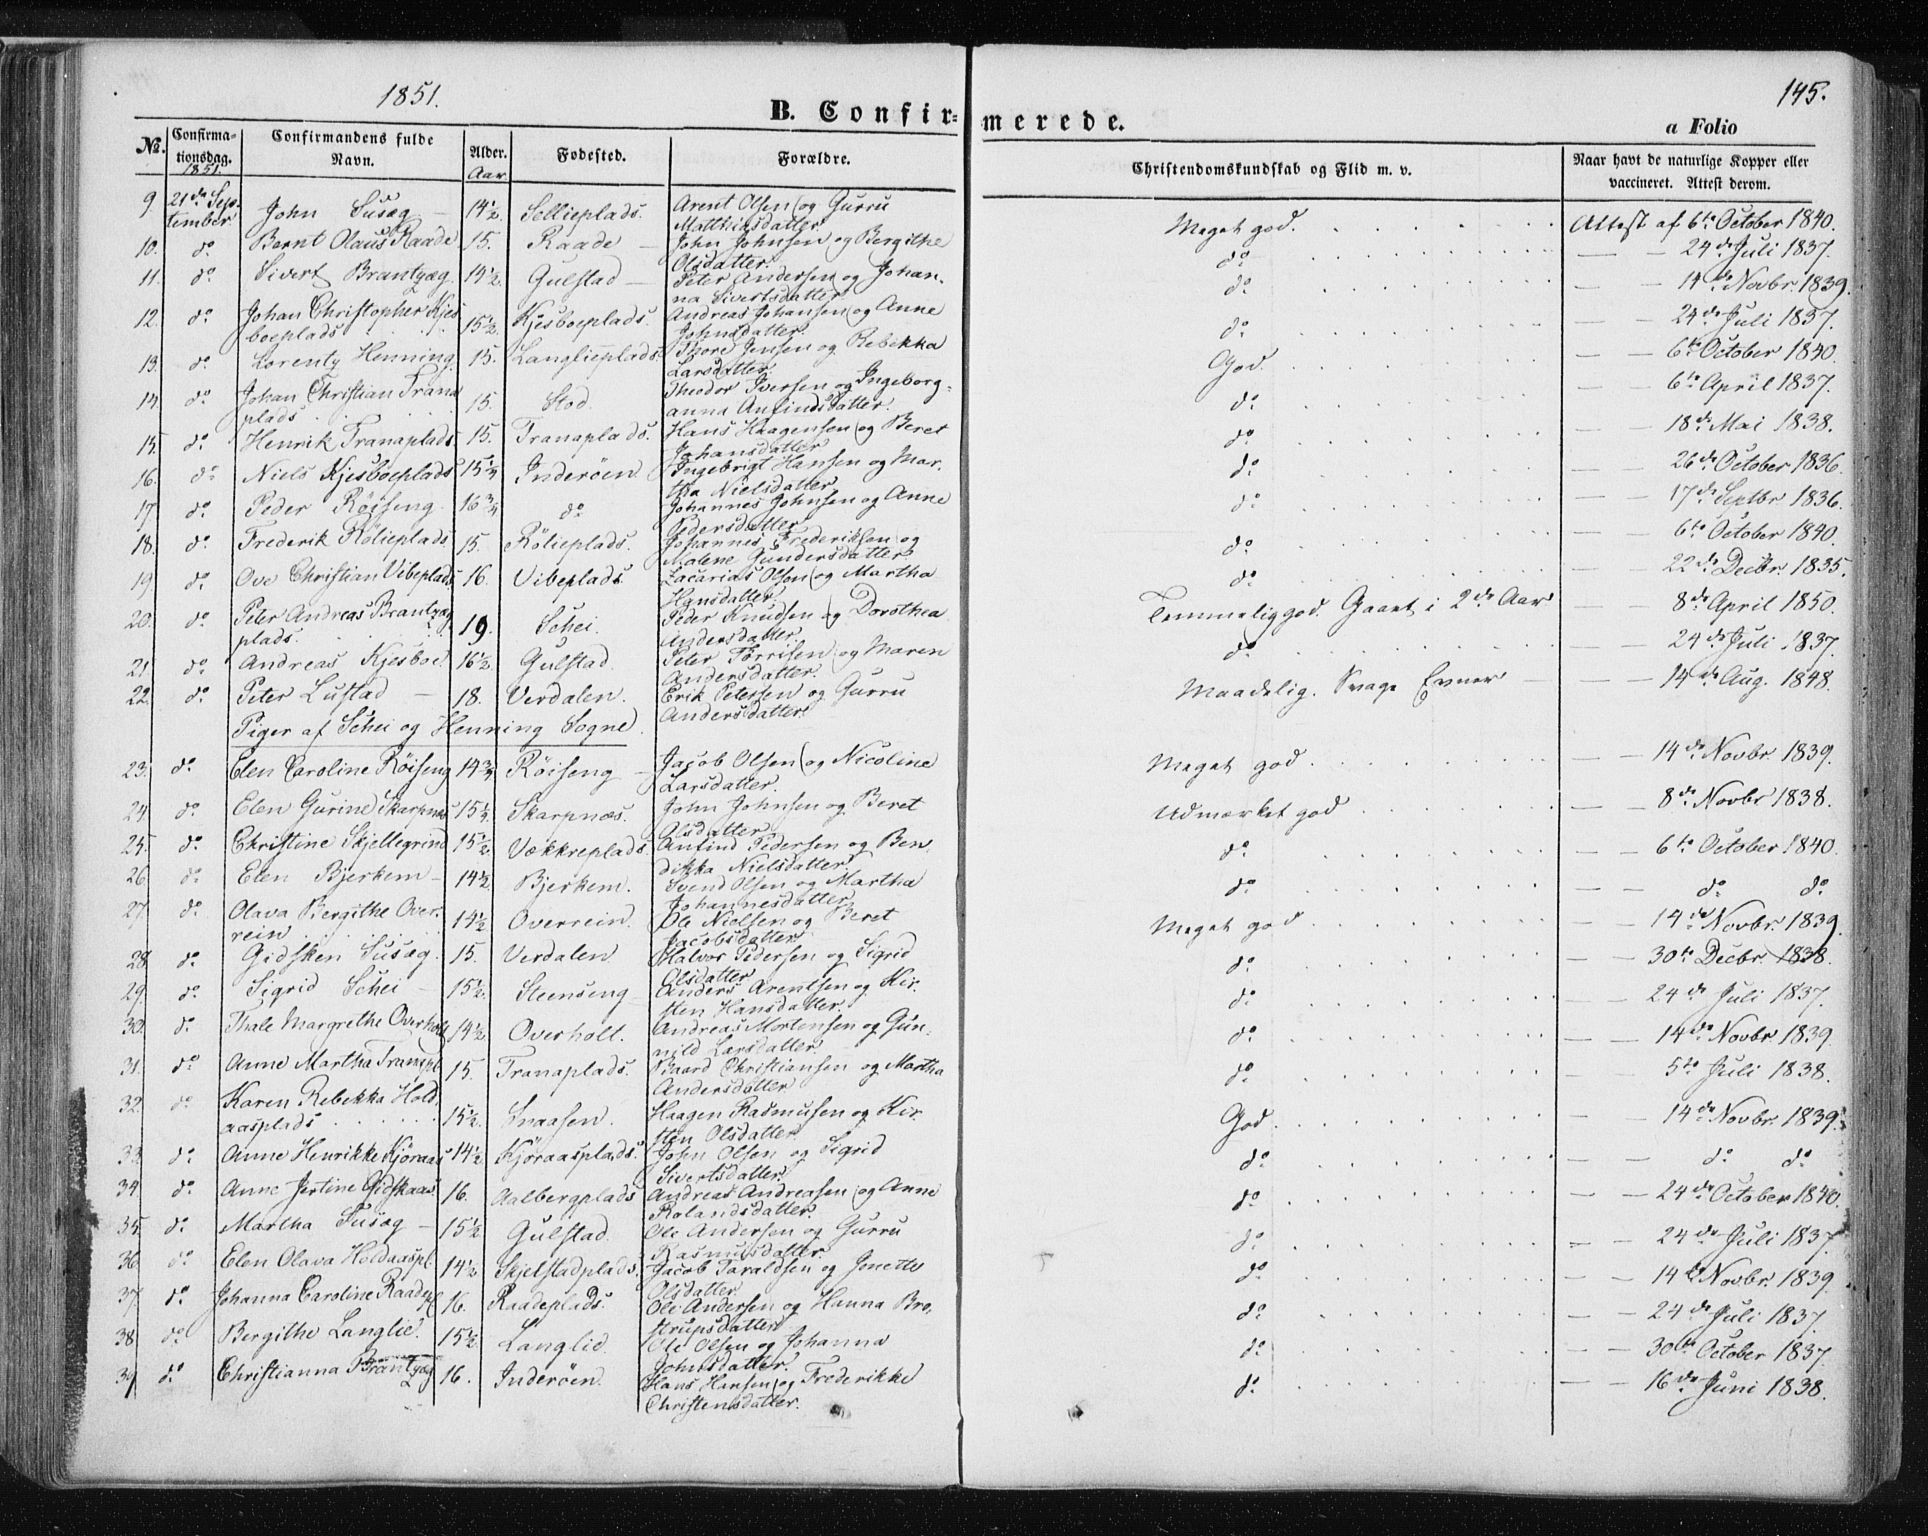 1851.
145.
B. Confir=
merede.
a Folio
No.
Confirma-
tionsdag.
1851.
Confirmandens fulde
Navn.
Alder.
Aar
Fødested.
Forældre.
Christendomskundskab og Flid m. v.
Naar havt de naturlige Kopper eller
vaccineret. Attest derom.
9 21de Sep- John Susæg — 14½. Sellieplads. Arent Olsen og Gurru Meget god. Attest af 6te October 1840.
tember. Matthiasdatter.
10. do Bernt Olaus Raade 15. Raade — John Johnsen og Bergithe do — — 24de Juli 1837.
Olsdatter.
11. do Sivert Brantzæg. 14½. Gulstad — Peter Andersen og Johan- do — — 14de Novbr. 1839.
na Sivertsdatter
12. do Johan Christopher Kjes 15½. Kjesboeplads. Andreas Johansen og Anne do — — 24de Juli 1837.
boeplads Johnsdatter.
13. do Lorentz Henning. 15. Langlieplads. Thore Jensen og Rebekka God. — — 6te October 1840.
Larsdatter.
14. do Johan Christian Trana 15. Stod. Theodor Iversen og Ingeborg- do — — 6te April 1837.
plads anna Anfindsdatter.
15. do Henrik Tranaplads 15. Tranaplads. Hans Haagensen og Beret do — — 18de Mai 1838.
Johansdatter
16. do Niels Kjesboeplads 15¼ Inderöen. Ingebrigt Hansen og Mar- do — — 26de October 1836.
tha Nielsdatter
17 do Peder Röiseng. 16¾ do Johannes Johnsen og Anne do — — 17de Septbr 1836.
Pedersdatter
18. do Frederik Rölieplads 15. Rölieplads. Johannes Frederiksen og do — — 6te October 1840.
Malene Gundersdatter
19. do Ove Christian Vibeplads 16. Vibeplads. Zacarias Olsen og Martha do — — 22de Decbr. 1835.
Hansdatter.
20. do Peter Andreas Brantzæg 19. Schei. Peder Knudsen og Dorothea Temmelig god. Gaaet i 2de Aar — 8de April 1850.
plads. Andersdatter.
21 do Andreas Kjesboe. 16½. Gulstad. Peter Törrisen og Maren do — — 24de Juli 1837.
Andersdatter.
22. do Peter Lustad — 18. Verdalen. Erik Petersen og Gurru Maadelig. Svage Evner — — — 14de Aug. 1848.
Andersdatter.
Piger af Schei og Henning Sogne.
23. do Elen Caroline Röiseng 14¾ Röiseng — Jacob Olsen og Nicoline Meget god. — — 14de Novbr. 1839.
Larsdatter.
24 do Elen Gurine Skarpnæs 15¼. Skarpnæs. John Johnsen og Beret Udmærket god — — 8de Novbr 1838.
Olsdatter
25. do Christine Skjellegrind 15½. Vækkreplads. Anfind Pedersen og Ben- do — — 6te October 1840.
dikka Nielsdatter
26 do Elen Bjerkem — 14½ Bjerkem. Svend Olsen og Martha do — — do do
Johannesdatter
27 do Olava Bergithe Over- 14½ Overrein. Ole Nielsen og Beret Meget god — — 14de Novbr. 1839.
rein Jacobsdatter.
28 do Gidsken Susæg. 15. Verdalen Halvor Pedersen og Sigrid do — — 30te Decbr. 1838.
Olsdatter
29. do Sigrid Schei — 15½. Steenseng — Anders Arentsen og Kir- do — — 24de Juli 1837.
sten Hansdatter.
30. do Thale Margrethe Overholt 14½ Overholt. Andreas Mortensen og Gun- do — — 14de Novbr. 1839.
nild Larsdatter
31. do Anne Martha Tranapl 15. Tranaplads. Baard Christiansen og Martha do — — 5te Juli 1838.
Andersdatter
32. do Karen Rebekka Hold 15½. Snaasen. Haagen Rasmusen og Kir- God. — — 14de Novbr. 1839.
aasplads sten Olsdatter
33 do Anne Henrikke Kjöraas 14½ Kjöraasplads. John Olsen og Sigrid do — — do do
Sivertsdatter
34. do Anne Jertine Gidskaas. 16. Aalbergplads Andreas Andreasen og Anne do — — 24de October 1840.
Rolandsdatter.
35. do Martha Susæg — 15½ Gulstad. Ole Andersen og Gurru do — — 24de Juli 1837.
Rasmusdatter.
36 do Elen Olava Holdaaspl. 14½ Skjelstadplads. Jacob Taraldsen og Jonette do — — 14de Novbr. 1839.
Olsdatter
37 do Johanna Caroline Raadepl 16. Raadeplads. Ole Andersen og Hanna Bro- do — — 24de Juli 1837.
strupsdatter
38 do Bergithe Langlie. 15½ Langlie. Ole Olsen og Johanna do — — 30te October 1837.
Johnsdatter.
39 do Christianna Brantzæg 16. Inderöen. Hans Hansen og Frederikke do — — 16de Juni 1838.
Christensdatter.